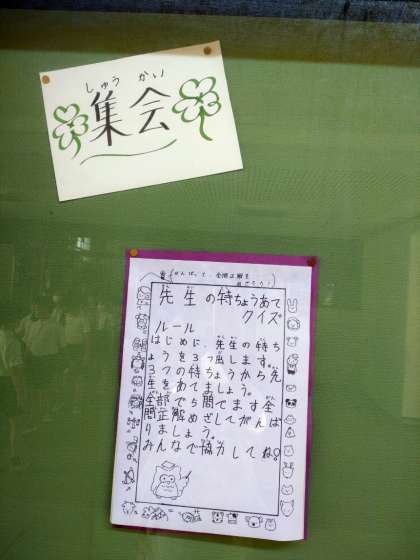 しゅう かい
集会
がんばって、全問正解を
めざそう!
先生の特ちょうあて
クイズ
ルール
はじめに、先生の特ち
ょうを3つ出します。
3つの特ちょうから先
生をあてましょう。
全部で5問でます全
問正解めざしてがんば
りましょう。
みんなで協力してね!